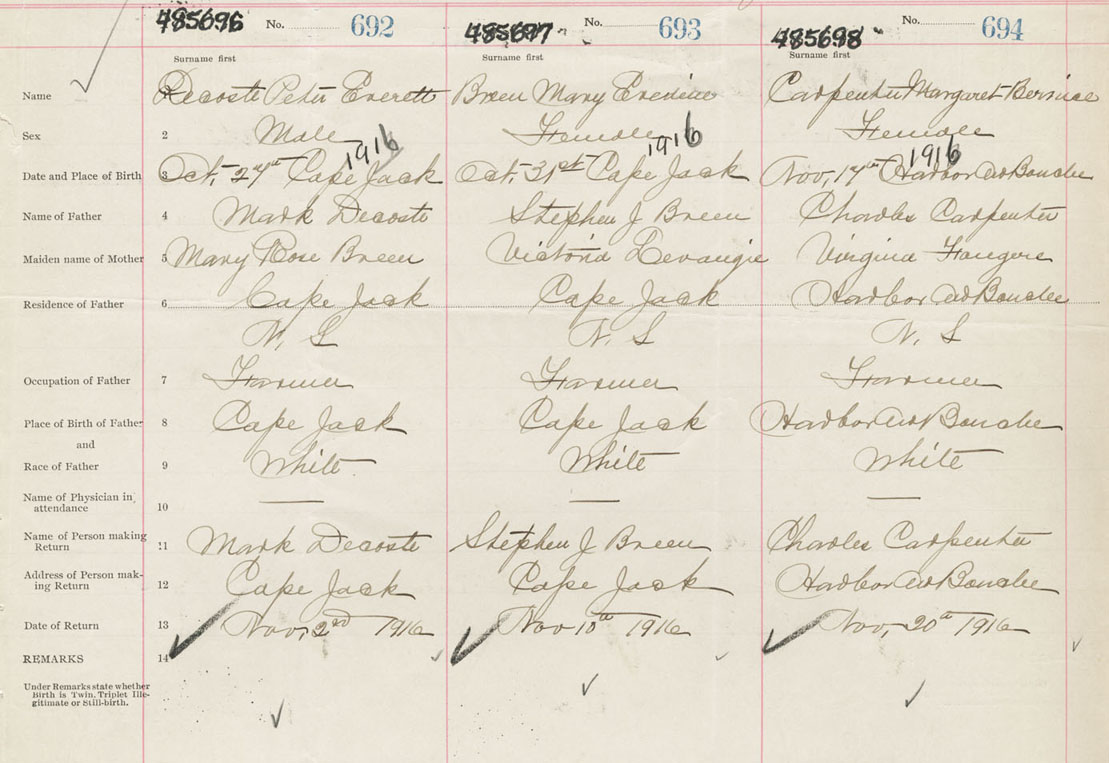 485696 No. 692 485697 No. 693 485698 No. 694
Surname first Surname first Surname first
Name Decoste Peter Everett Breen Mary Carpenter Margaret Bernice
Sex 2 Male Female Female
1916 1916 1916
Date and Place of Birth 3 Oct, 27th Cape Jack Oct, 31st Cape Jack Nov, 17th Harbor au Bouche
Name of Father 4 Mark Decoste Stephen J Breen Charles Carpenter
Maiden name of Mother 5 Mary Rose Breen Victoria Levangie Virginia
Residence of Father 6 Cape Jack Cape Jack Harbor au Bouche
N, S N. S N, S
Occupation of Father 7 Farmer Farmer Farmer
Place of Birth of Father 8 Cape Jack Cape Jack Harbor au Bouche
and
Race of Father 9 White White White
Name of Physician in
attendance 10 — — —
Name of Person making
Return 11 Mark Decoste Stephen J Breen Charles Carpenter
Address of Person mak-
ing Return 12 Cape Jack Cape Jack Harbor au Bouche
Date of Return 13 Nov, 2nd 1916 Nov 10th 1916 Nov, 20th 1916
REMARKS 14
Under Remarks state whether
Birth is Twin, Triplet Ille-
gitimate or Still-birth.